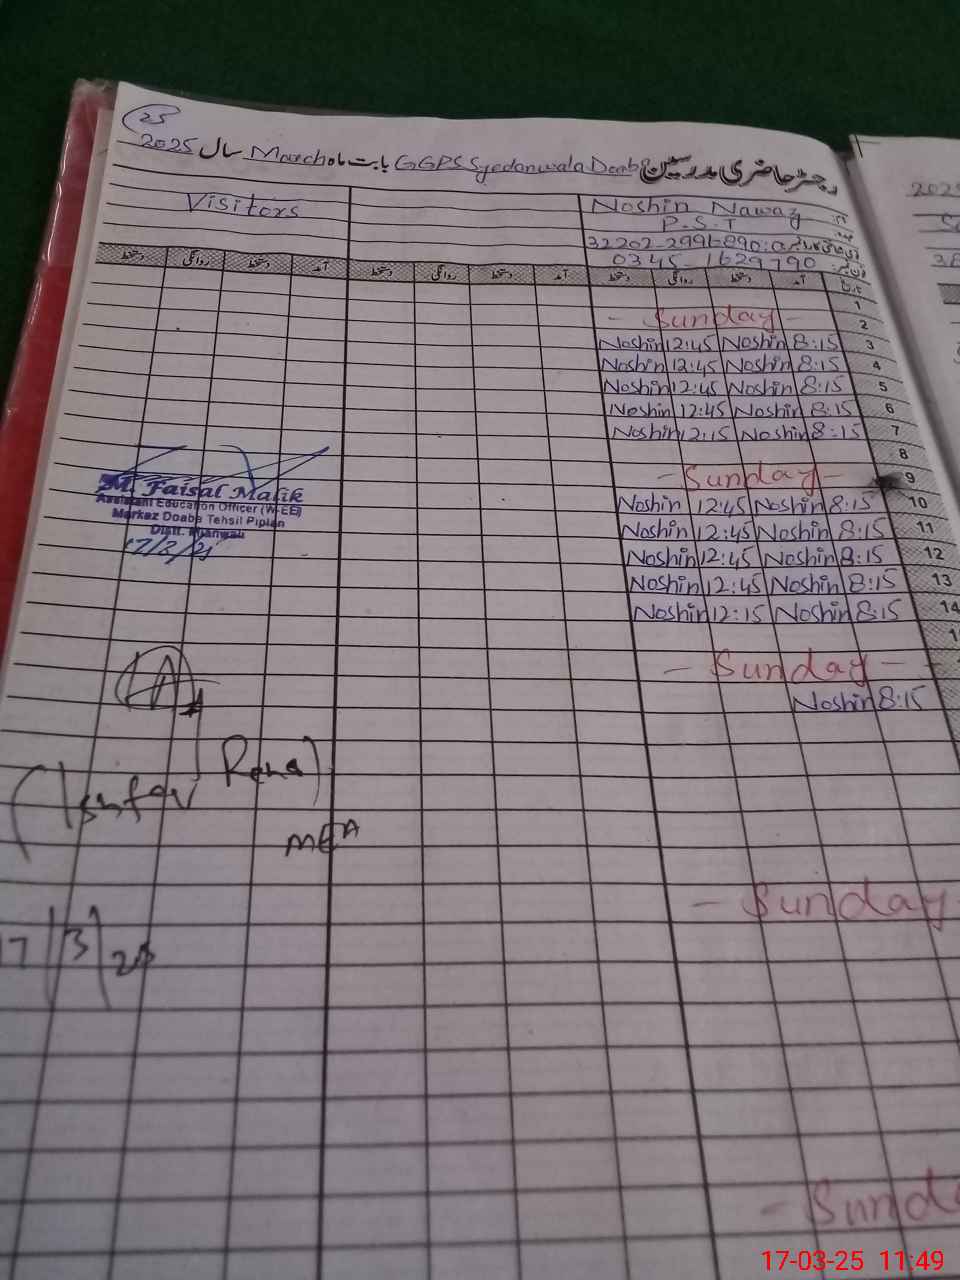 25
رجسٹر حاضری مدرسین GGPS Syedanwala Doaba بابت ماہ March سال 2025
Noshin Nawaz
Visitors
P.S.T
32202-2991-890
0345-1629790
تاریخ آمد دستخط روانگی دستخط آمد دستخط روانگی دستخط آمد دستخط روانگی دستخط
1
- Sunday - 2
Noshin 12:45 Noshin 8:15 3
Noshin 12:45 Noshin 8:15 4
Noshin 12:45 Noshin 8:15 5
Noshin 12:45 Noshin 8:15 6
Noshin 12:15 Noshin 8:15 7
8
- Sunday - 9
Noshin 12:45 Noshin 8:15 10
Noshin 12:45 Noshin 8:15 11
Noshin 12:45 Noshin 8:15 12
Noshin 12:45 Noshin 8:15 13
Noshin 12:15 Noshin 8:15 14
- Sunday -
Noshin 8:15
- Sunday
- Sunda
M. Faisal Malik
Assistant Education Officer (W-EE)
Markaz Doaba Tehsil Piplan
Distt. Mianwali
17/3/25
Rana)
MEA
17/3/25
2025
17-03-25 11:49